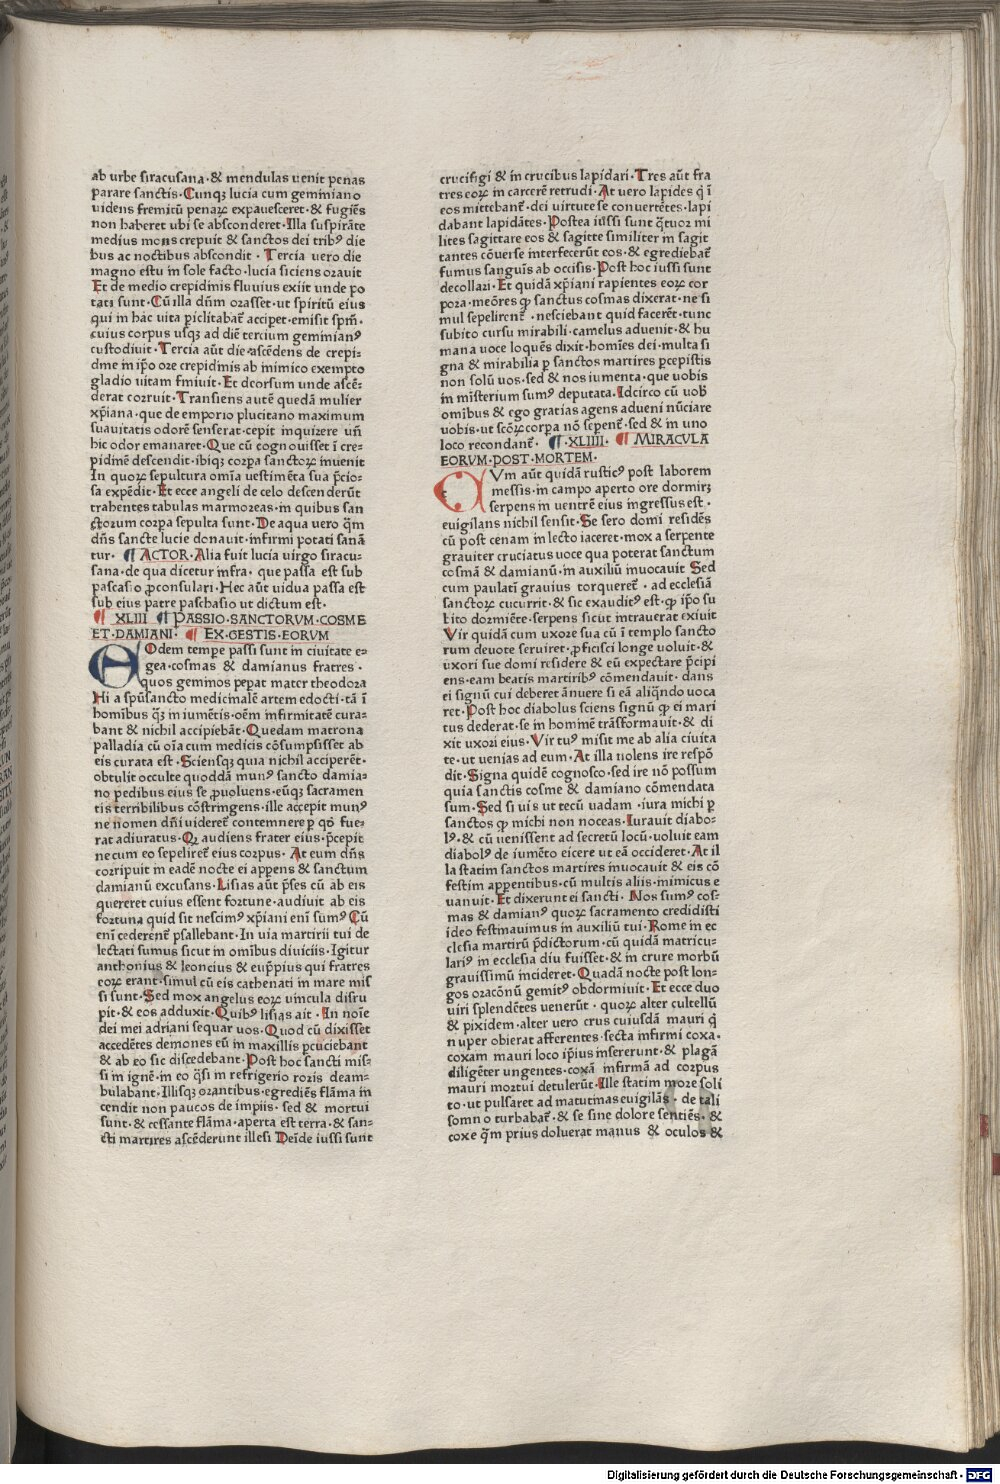 ab urbe siracusana·& mendulas uenit penas
parare sanctis·Cunqꝫ lucia cum geminiano
uidens fremitū penaꝝ expauesceret·& fugiēs
non haberet ubi se absconderet·Illa suspirāte
medius mons crepuit & sanctos dei tribꝰ die
bus ac noctibus abscondit·Tercia uero die
magno estu in sole facto·lucia siciens orauit
Et de medio crepidinis fluuius exiit unde po
tati sunt·Cū illa dn̄m orasset·ut spiritū eius
qui in hac uita ꝑiclitabat̄ accipet·emisit spm̄·
cuius corpus usqꝫ ad diē tercium geminianꝰ
custodiuit·Tercia aūt die·ascēdens de crepi⸗
dine in ip̄o oze crepidinis ab inimico exempto
gladio uitam finiuit·Et deorsum unde ascē⸗
derat corruit·Transiens autē quedā mulier
xp̄iana·que de emporio plucitano maximum
suauitatis odorē senserat·cepit inquirere un̄
hic odor emanaret·Que cū cognouisset ī cre⸗
pidinē descendit·ibiqꝫ corpa sanctoꝝ inuenit
In quoꝝ sepultura omīa uestimēta sua p̄cio⸗
sa expēdit·Et ecce angeli de celo descenderūt
trahentes tabulas marmoreas·in quibus san
ctorum corpa sepulta sunt·De aqua uero q̄m
dn̄s sancte lucie donauit·infirmi potati sanā
tur· ¶ ACTOR·Alia fuit lucia uirgo siracu⸗
sana·de qua dicetur infra· que passa est sub
pascasio ꝓconsulari·Hec aūt uidua passa est
sub eius patre paschasio ut dictum est·
¶ XLIII ¶ PASSIO·SANCTORVM·COSME
ET·DAMIANI· ¶ EX·GESTIS·EORVM
EOdem tempe passi sunt in ciuitate e⸗
gea·cosmas & damianus fratres·
quos geminos peꝑat mater theodora
Hi a spūsancto medicinalē artem edocti·tā ī
homībus q̄ꝫ in iumētis·oēm infirmitatē cura⸗
bant & nichil accipiebāt·Quedam matrona
palladia cū oīa cum medicis cōsumpsisset ab
eis curata est·Sciensqꝫ quia nichil acciperēt·
obtulit occulte quoddā munꝰ sancto damia⸗
no pedibus eius se ꝓuoluens·eūqꝫ sacramen
tis terribilibus cōstringens·ille accepit munꝰ
ne nomen dn̄i uideret̄ contemnere ꝑ qd̄ fue⸗
rat adiuratus·Qꝫ audiens frater eius·p̄cepit
ne cum eo sepeliret̄ eius corpus· At eum dn̄s
corripuit in eadē nocte ei appens & sanctum
damianū excusans·Lisias aūt p̄ses cū ab eis
quereret cuius essent fortune·audiuit ab eis
fortuna quid sit nescimꝰ xp̄iani enī sumꝰ Cū
enī cederent̄ psallebant·In uia martirii tui de
lectati sumus sicut in omībus diuiciis·Igitur
anthonius & leoncius & eup̄pius qui fratres
eoꝝ erant·simul cū eis cathenati in mare mis
si sunt·Sed mox angelus eoꝝ uincula disru
pit·& eos adduxit·Quibꝰ lisias ait·In noīe
dei mei adriani sequar uos·Quod cū dixisset
accedētes demones eū in maxillis ꝑcuciebant
& ab eo sic discedebant·Post hoc sancti mis⸗
si in ignē·in eo q̄si in refrigerio roris deam⸗
bulabant·Illisqꝫ orantibus·egrediēs flāma in
cendit non paucos de impiis· sed & mortui
sunt·& cessante flāma·aperta est terra·& san⸗
cti martires ascēderunt illesi Deīde iussi sunt
crucifigi & in crucibus lapidari·Tres aūt fra
tres eoꝝ in carcerē retrudi·At uero lapides q̄ ī
eos mittebant̄·dei uirtute se conuertētes·lapi
dabant lapidātes·Postea iussi sunt q̄tuor mi
lites sagittare eos & sagitte similiter in sagit
tantes cōuerse interfecerūt eos·& egrediebat̄
fumus sanguīs ab occisis·Post hoc iussi sunt
decollari·Et quidā xp̄iani rapientes eoꝝ cor
pora·meōres ꝙ sanctus cosmas dixerat·ne si
mul sepelirent̄ ·nesciebant quid facerēt·tunc
subito cursu mirabili·camelus aduenit·& hu
mana uoce loquēs dixit·homīes dei·multa si
gna & mirabilia ꝑ sanctos martires ꝑcepistis
non solū uos·sed & nos iumenta·que uobis
in misterium sumꝰ deputata·Idcirco cū uob̄
omībus & ego gratias agens adueni nūciare
uobis·ut scōꝝ corpa nō sepent̄·sed & in uno
loco recondant̄· ¶·XLIIII· ¶ MIRACVLA
EORVM·POST·MORTEM·
CVm aūt quidā rusticꝰ post laborem
messis·in campo aperto ore dormirꝫ
serpens in uentrē eius ingressus est·
euigilans nichil sensit·Se sero domi residēs
cū post cenam in lecto iaceret·mox a serpente
grauiter cruciatus uoce qua poterat sanctum
cosmā & damianū·in auxiliū inuocauit Sed
cum paulatī grauius torqueret̄ ·ad ecclesiā
sanctoꝝ cucurrit·& sic exauditꝰ est·ꝙ ip̄o su
bito dormiēte·serpens sicut intrauerat exiuit
Vir quidā cum uxore sua cū ī templo sancto
rum deuote seruiret·ꝓficisci longe uoluit·&
uxori sue domi residere & eū expectare p̄cipi
ens·eam beatis martiribꝰ cōmendauit·dans
ei signū cui deberet ānuere si eā aliqn̄do uoca
ret·Post hoc diabolus sciens signū ꝙ ei mari
tus dederat·se in hominē trāsformauit·& di
xit uxori eius·Vir tuꝰ misit me ab alia ciuita
te·ut uenias ad eum·At illa nolens ire respō
dit·Signa quidē cognosco·sed ire nō possum
quia sanctis cosme & damiano cōmendata
sum·Sed si uis ut tecū uadam·iura michi ꝑ
sanctos ꝙ michi non noceas·Iurauit diabo⸗
lꝰ·& cū uenissent ad secretū locū·uoluit eam
diabolꝰ de iumēto eicere ut eā occideret·At il
la statim sanctos martires inuocauit & eis cō
festim appentibus·cū multis aliis·inimicus e
uanuit·Et dixerunt ei sancti· Nos sumꝰ cos⸗
mas & damianꝰ quoꝝ sacramento credidisti
ideo festinauimus in auxiliū tui·Rome in ec
clesia martirū p̄dictorum·cū quidā matricu⸗
lariꝰ in ecclesia diu fuisset·& in crure morbū
grauissimū incideret·Quadā nocte post lon⸗
gos oracōnū gemitꝰ obdormiuit·Et ecce duo
uiri splendētes uenerūt ·quoꝝ alter cultellū
& pixidem·alter uero crus cuiusdā mauri q̄
nuper obierat afferentes·secta infirmi coxa·
coxam mauri loco ip̄ius inserunt·& plagā
diligēter ungentes·coxā infirmā ad corpus
mauri mortui detulerūt·Ille statim more soli
to·ut pulsaret ad matutinas euigilās·de tali
somno turbabat̄·& se sine dolore sentiēs·&
coxe q̄m prius doluerat manus & oculos &
Digitalisierung gefördert durch die Deutsche Forschungsgemeinschaft · DFG